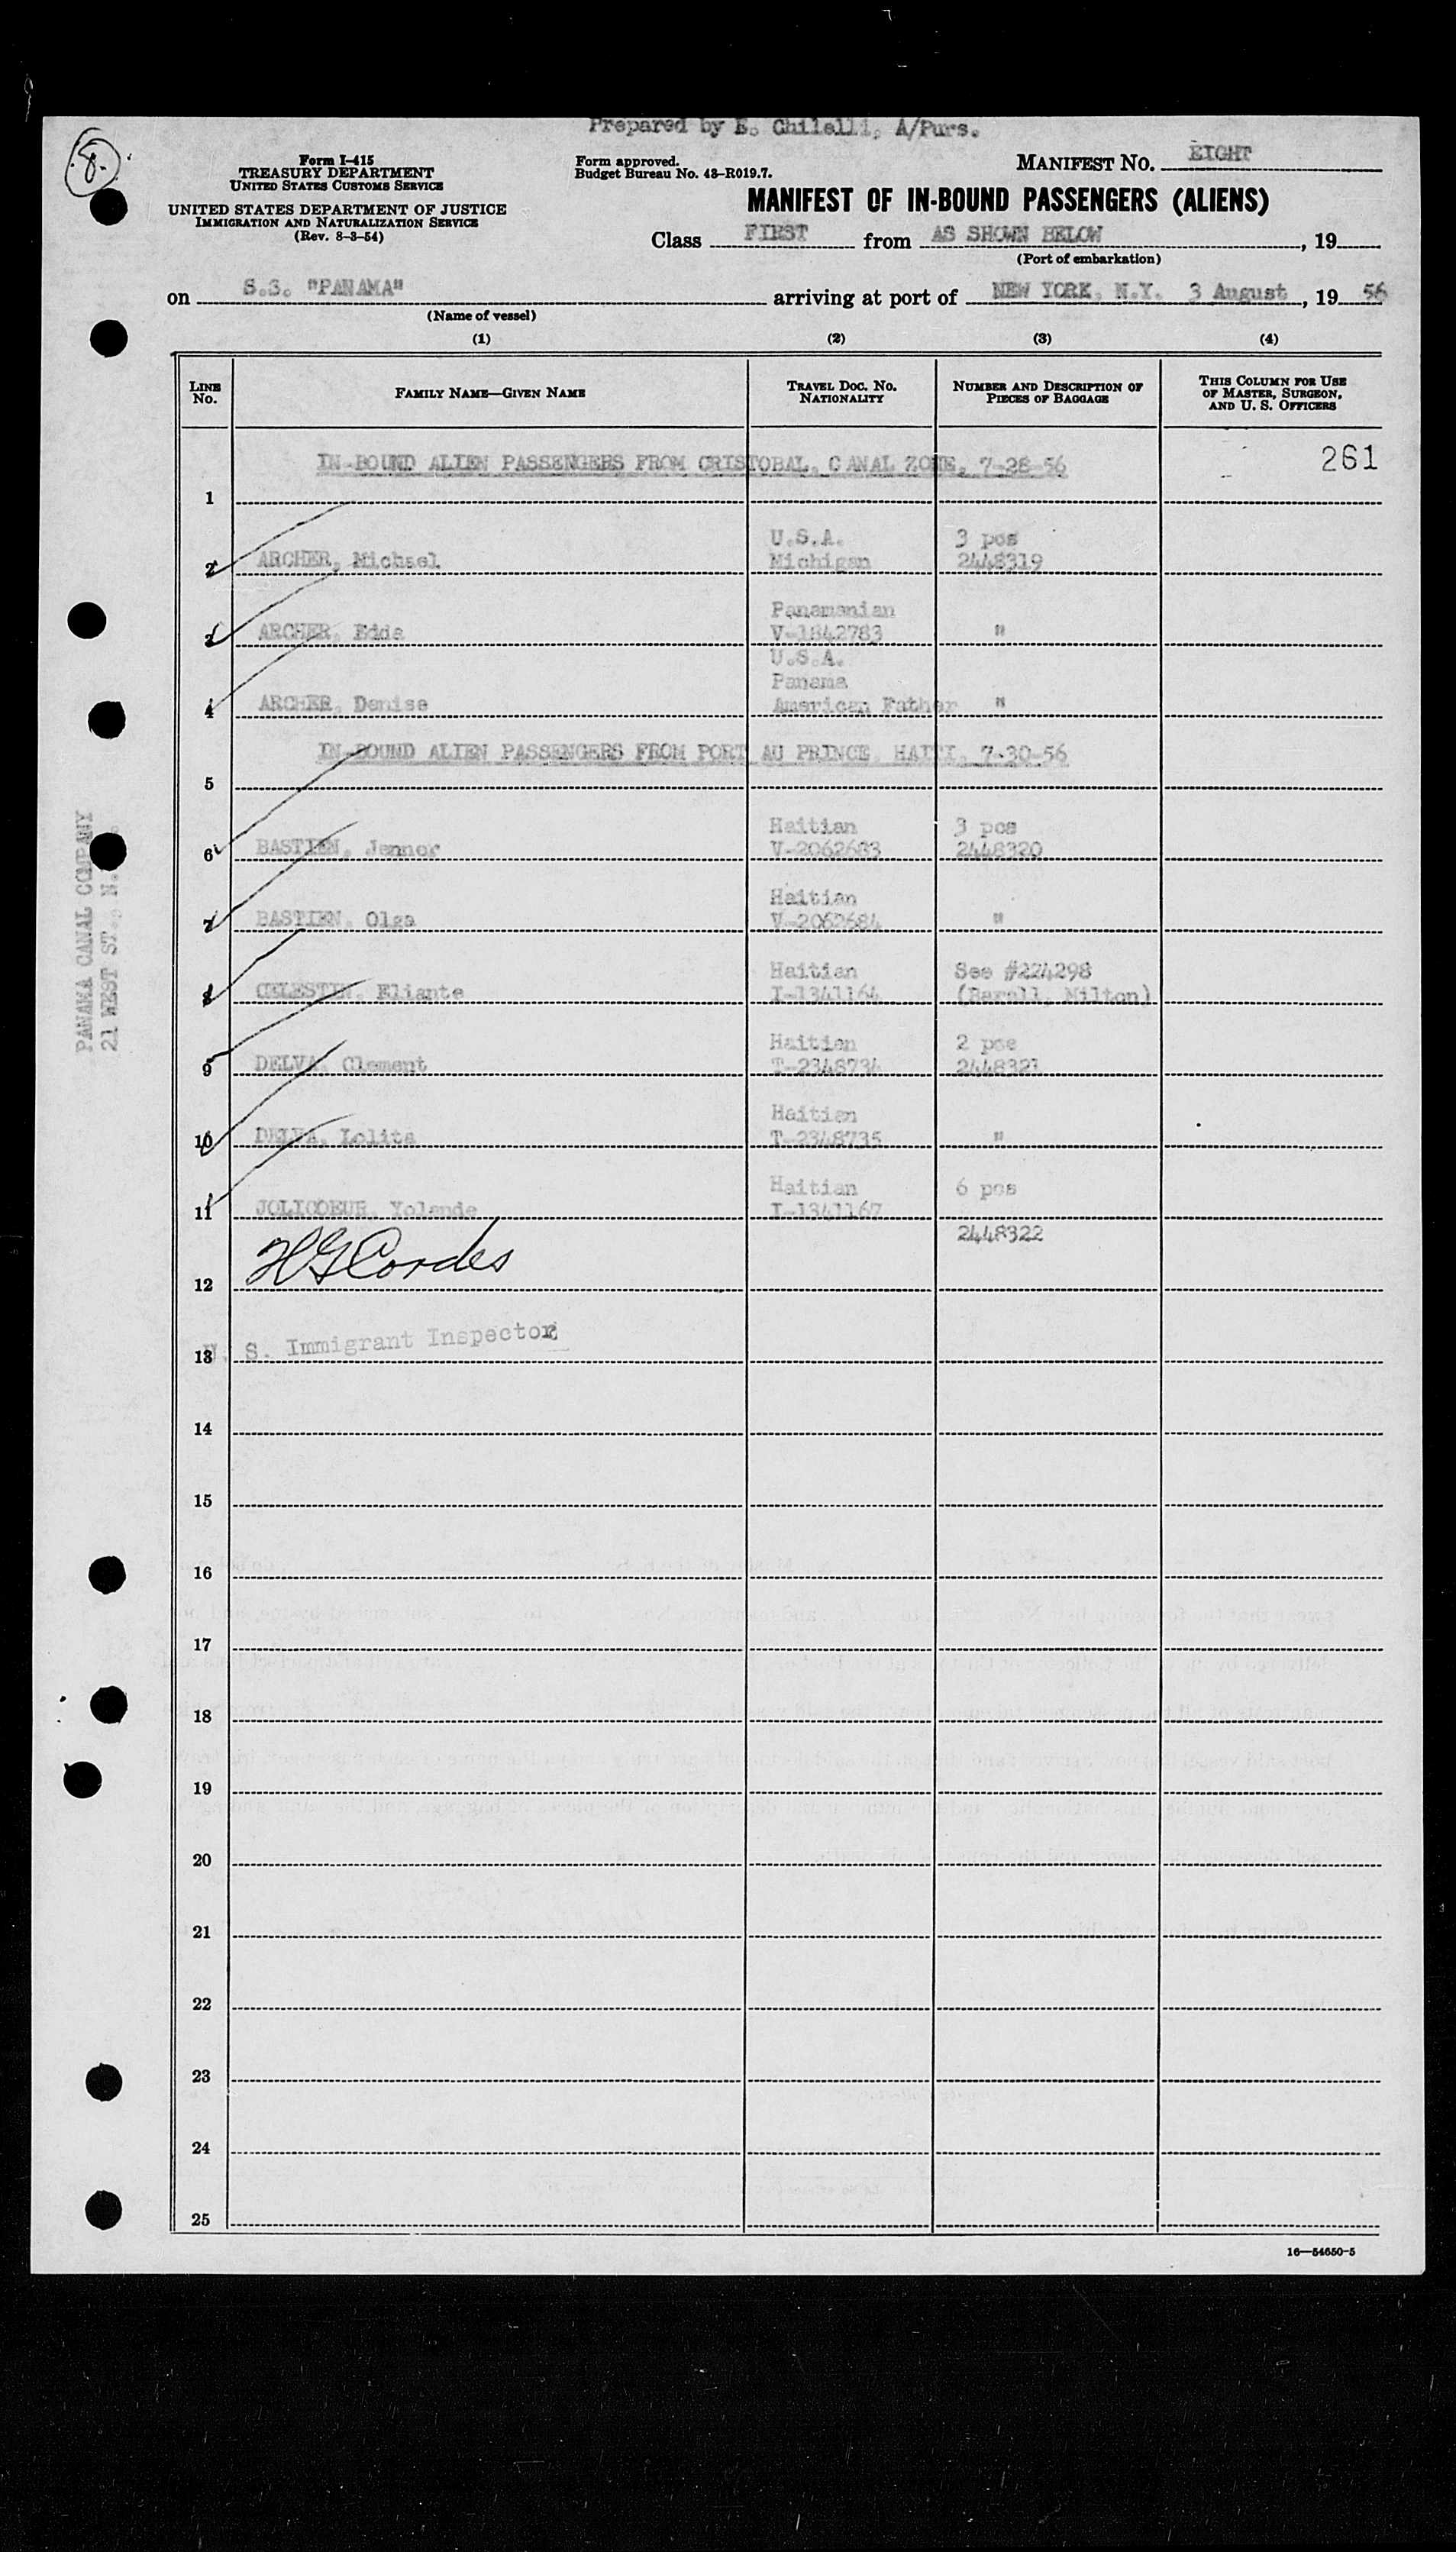 Prepared by E. Chilelli, A/Purs.
8.
Form I-415
TREASURY DEPARTMENT
UNITED STATES CUSTOMS SERVICE
UNITED STATES DEPARTMENT OF JUSTICE
IMMIGRATION AND NATURALIZATION SERVICE
(Rev. 8-3-54)
Form approved.
Budget Bureau No. 43-R019.7.
MANIFEST NO. EIGHT
MANIFEST OF IN-BOUND PASSENGERS (ALIENS)
Class FIRST from AS SHOWN BELOW, 19
(Port of embarkation)
on S.S. "PANAMA" arriving at port of NEW YORK, N.Y. 3 August, 19 56
(Name of vessel)
(1) (2) (3) (4)
LINE NO. FAMILY NAME—GIVEN NAME TRAVEL DOC. NO. NATIONALITY NUMBER AND DESCRIPTION OF PIECES OF BAGGAGE THIS COLUMN FOR USE OF MASTER, SURGEON, AND U. S. OFFICERS
261
1 IN-BOUND ALIEN PASSENGERS FROM CRISTOBAL, CANAL ZONE, 7-28-56
U.S.A. 3 pcs
2 ARCHER, Michael Michigan 2448319
Panamanian
3 ARCHER, Edda V-1842783 "
U.S.A.
Panama
4 ARCHER, Denise American Father "
5 IN-BOUND ALIEN PASSENGERS FROM PORT AU PRINCE, HAITI, 7-30-56
Haitian 3 pcs
6 BASTIEN, Jennor V-2062683 2448320
Haitian
7 BASTIEN, Olga V-2062684 "
Haitian See #224298
8 CELESTIN, Eliante I-1341164 (Barall, Milton)
Haitian 2 pcs
9 DELVA, Clement T-2348734 2448321
Haitian
10 DELVA, Lolita T-2348735 "
Haitian 6 pcs
11 JOLICOEUR, Yolande I-1341167
2448322
12 HGCordes
13 U. S. Immigrant Inspector
14
15
16
17
18
19
20
21
22
23
24
25
16—54650-5
PANAMA CANAL COMPANY
21 WEST ST., N.